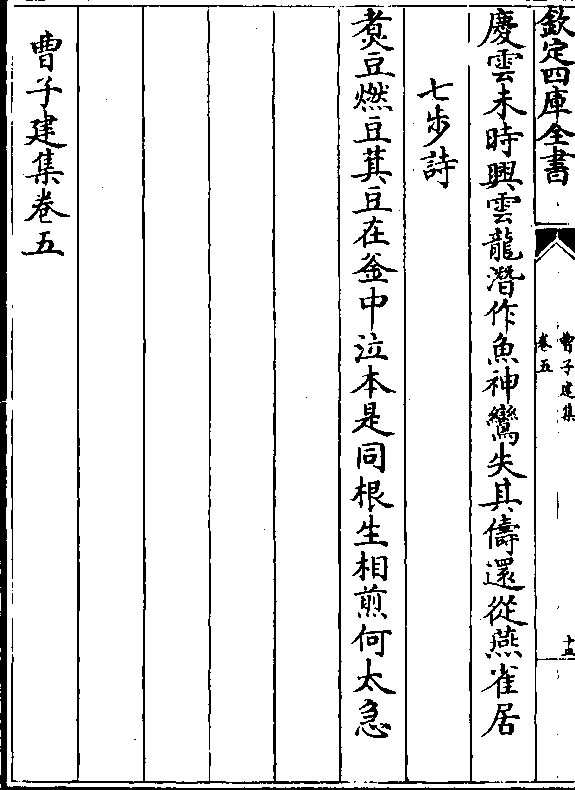 欽定四庫全書
曹子建集
卷五
十四
慶雲未時興雲龍潛作魚神鸞失其儔還從燕雀居
七步詩
煮豆燃豆萁豆在釜中泣本是同根生相煎何太急
曹子建集卷五